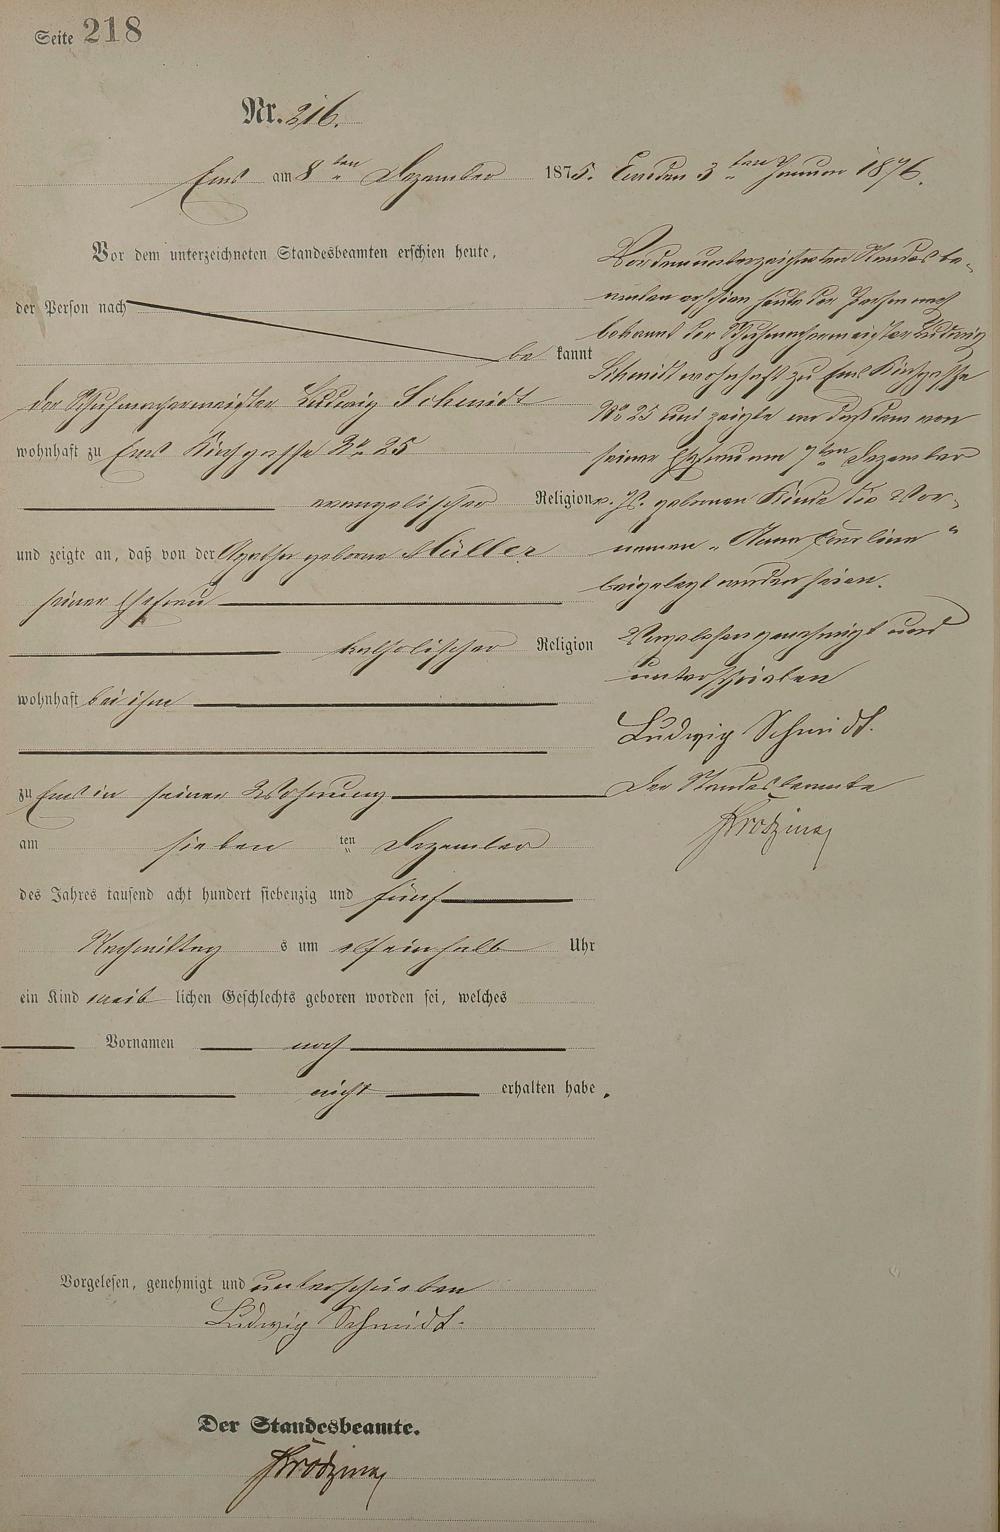 Seite 218
Nr. 216.
Ems am 8ten Dezember 1875.
Vor dem unterzeichneten Standesbeamten erschien heute,
der Person nach
be kannt
der Schuhmachermeister Ludwig Schmidt
wohnhaft zu Ems Kirchgasse No 25
evangelischer Religion
und zeigte an, daß von der Agathe geborne Müller
seiner Ehefrau
katholischer Religion
wohnhaft bei ihm
zu Ems in seiner Wohnung
am sieben ten Dezember
des Jahres tausend acht hundert siebenzig und fünf
Nachmittag s um elfeinhalb Uhr
ein Kind weib lichen Geschlechts geboren worden sei, welches
Vornamen noch
nicht erhalten habe.
Vorgelesen, genehmigt und unterschrieben
Ludwig Schmidt.
Der Standesbeamte.
Ems den 3ten Januar 1876.
Vor dem unterzeichneten Standesbe-
amten erschien heute der Person nach
bekannt der Schuhmachermeister Ludwig
Schmidt wohnhaft zu Ems Kirchgasse
No 25 und zeigte an daß dem von
seiner Ehefrau am 7ten Dezember
v. Js. gebornen Kinde die Vor-
namen „Anna Karoline“
beigelegt worden seien.
Vorgelesen genehmigt und
unterschrieben
Ludwig Schmidt.
Der Standesbeamte